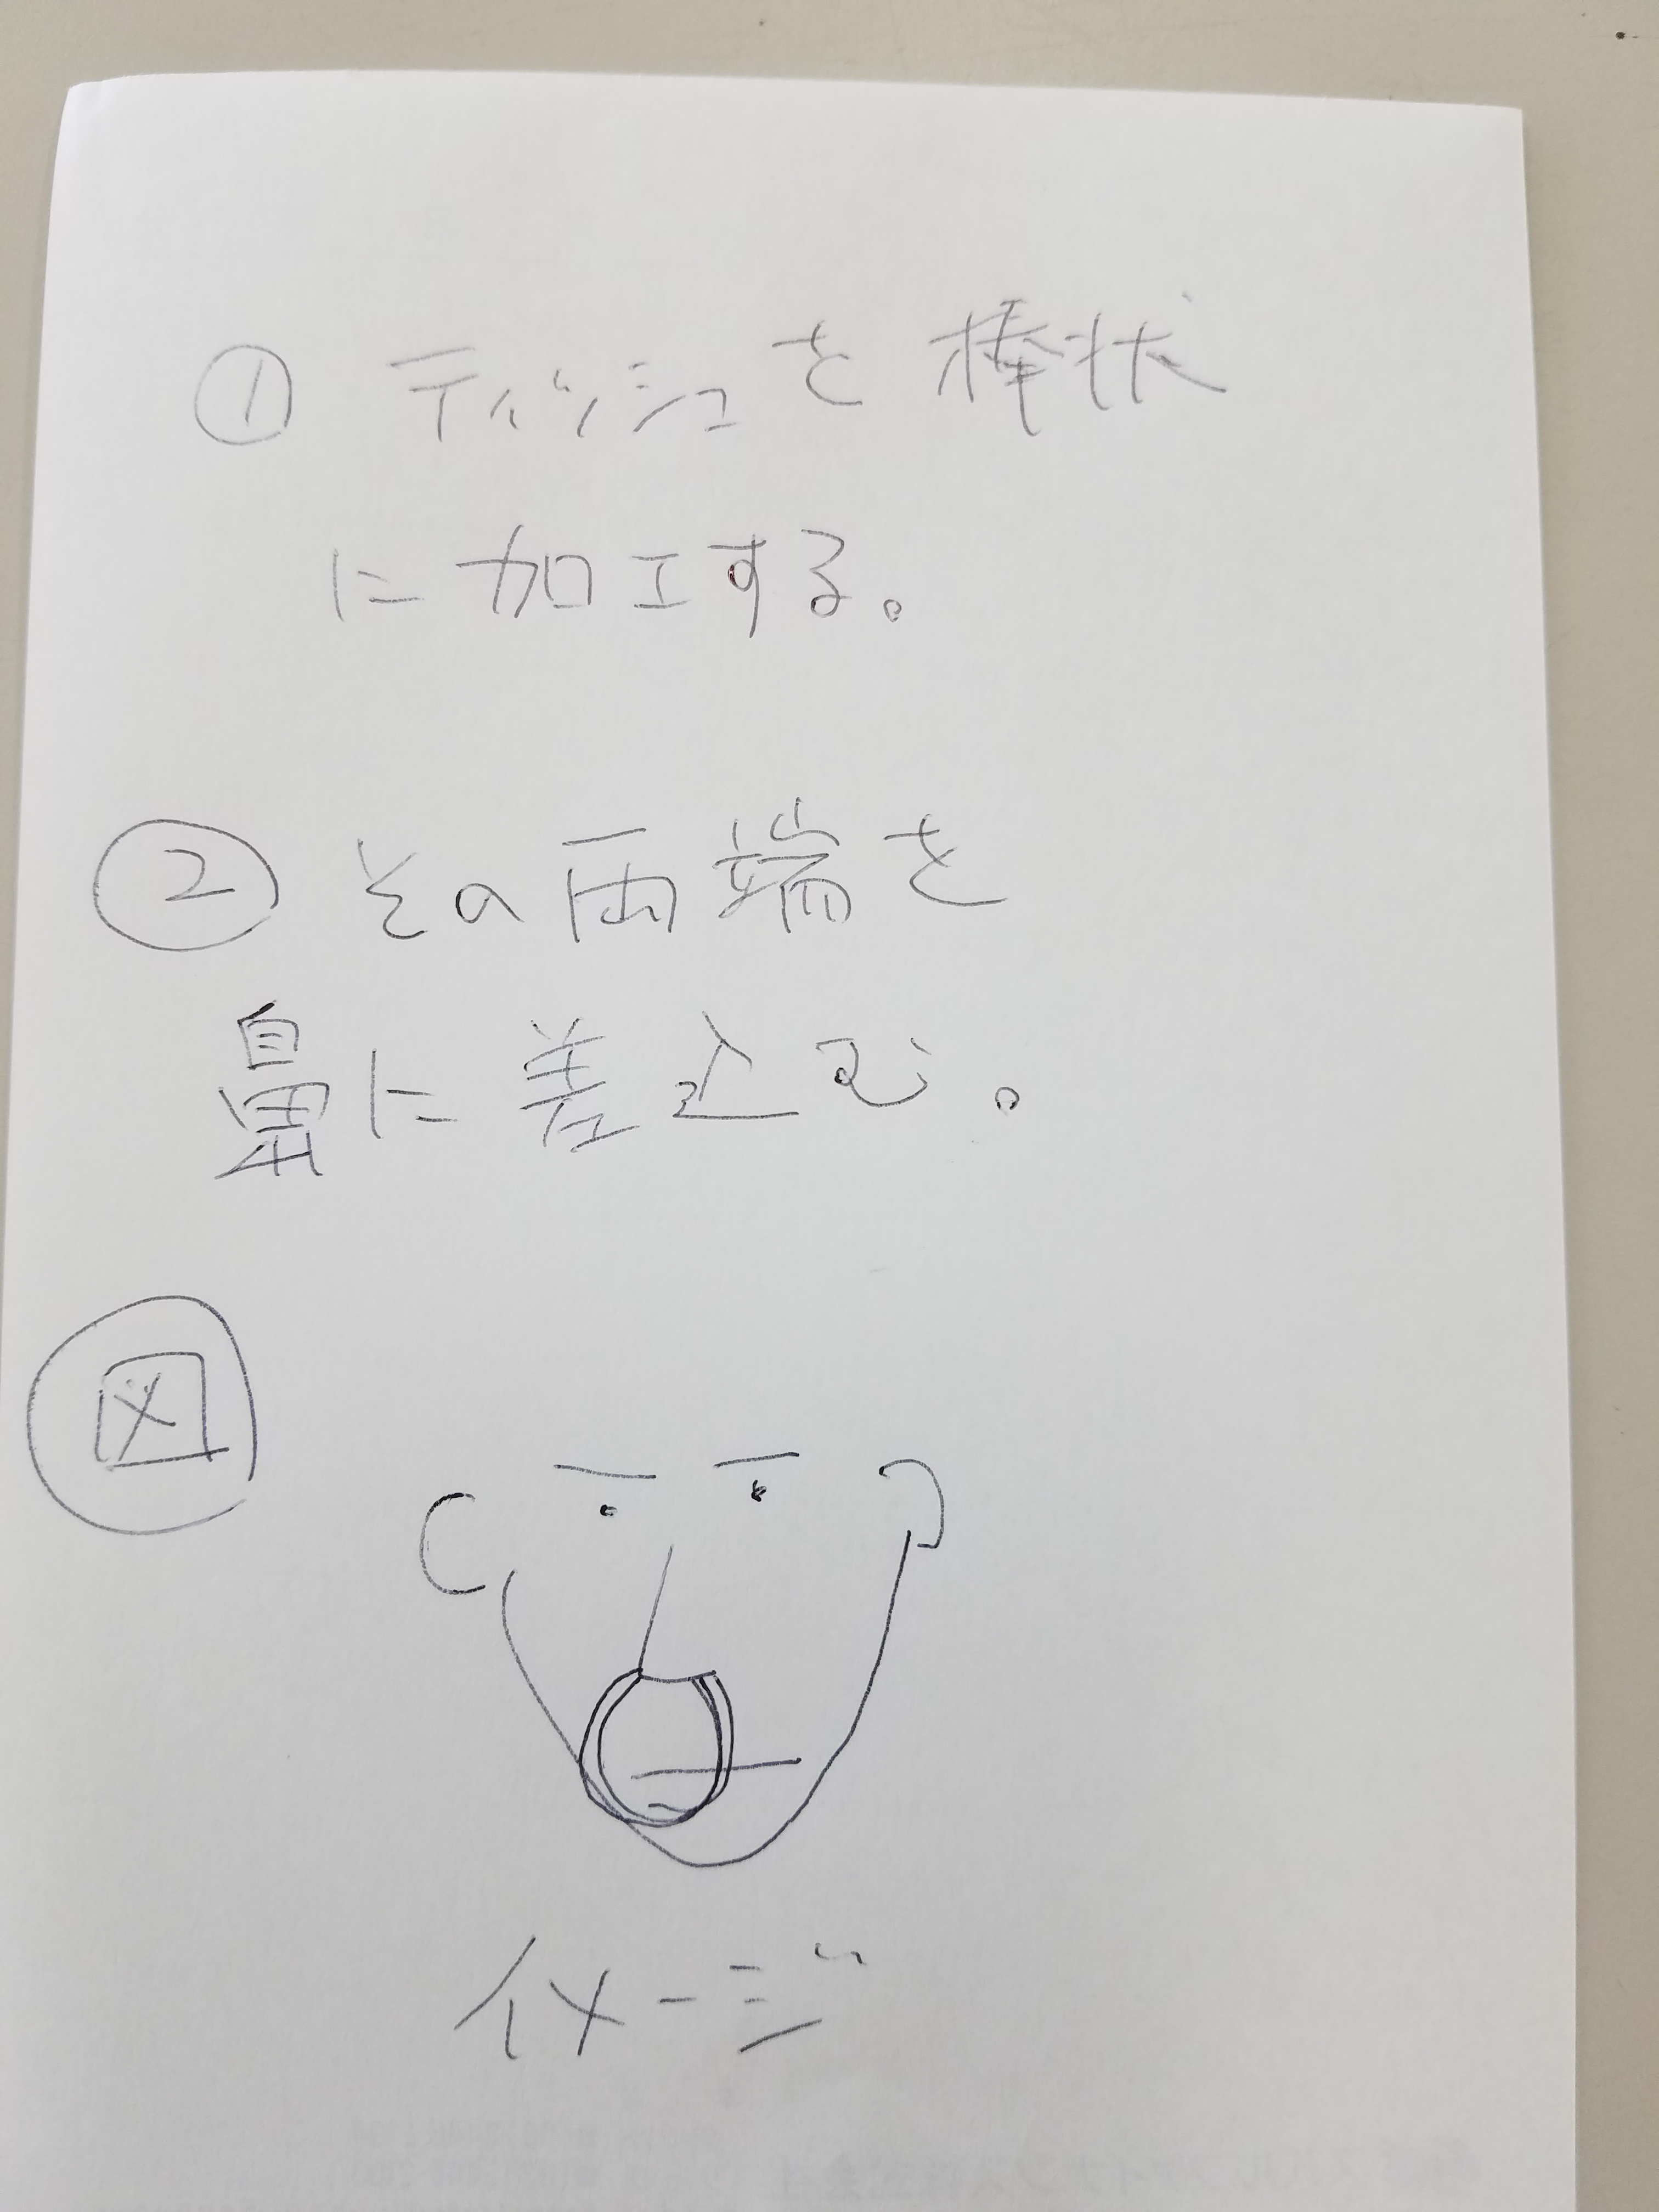 ① ティッシュを棒状
に加工する。
② その両端を
鼻に差込む。
図
イメージ